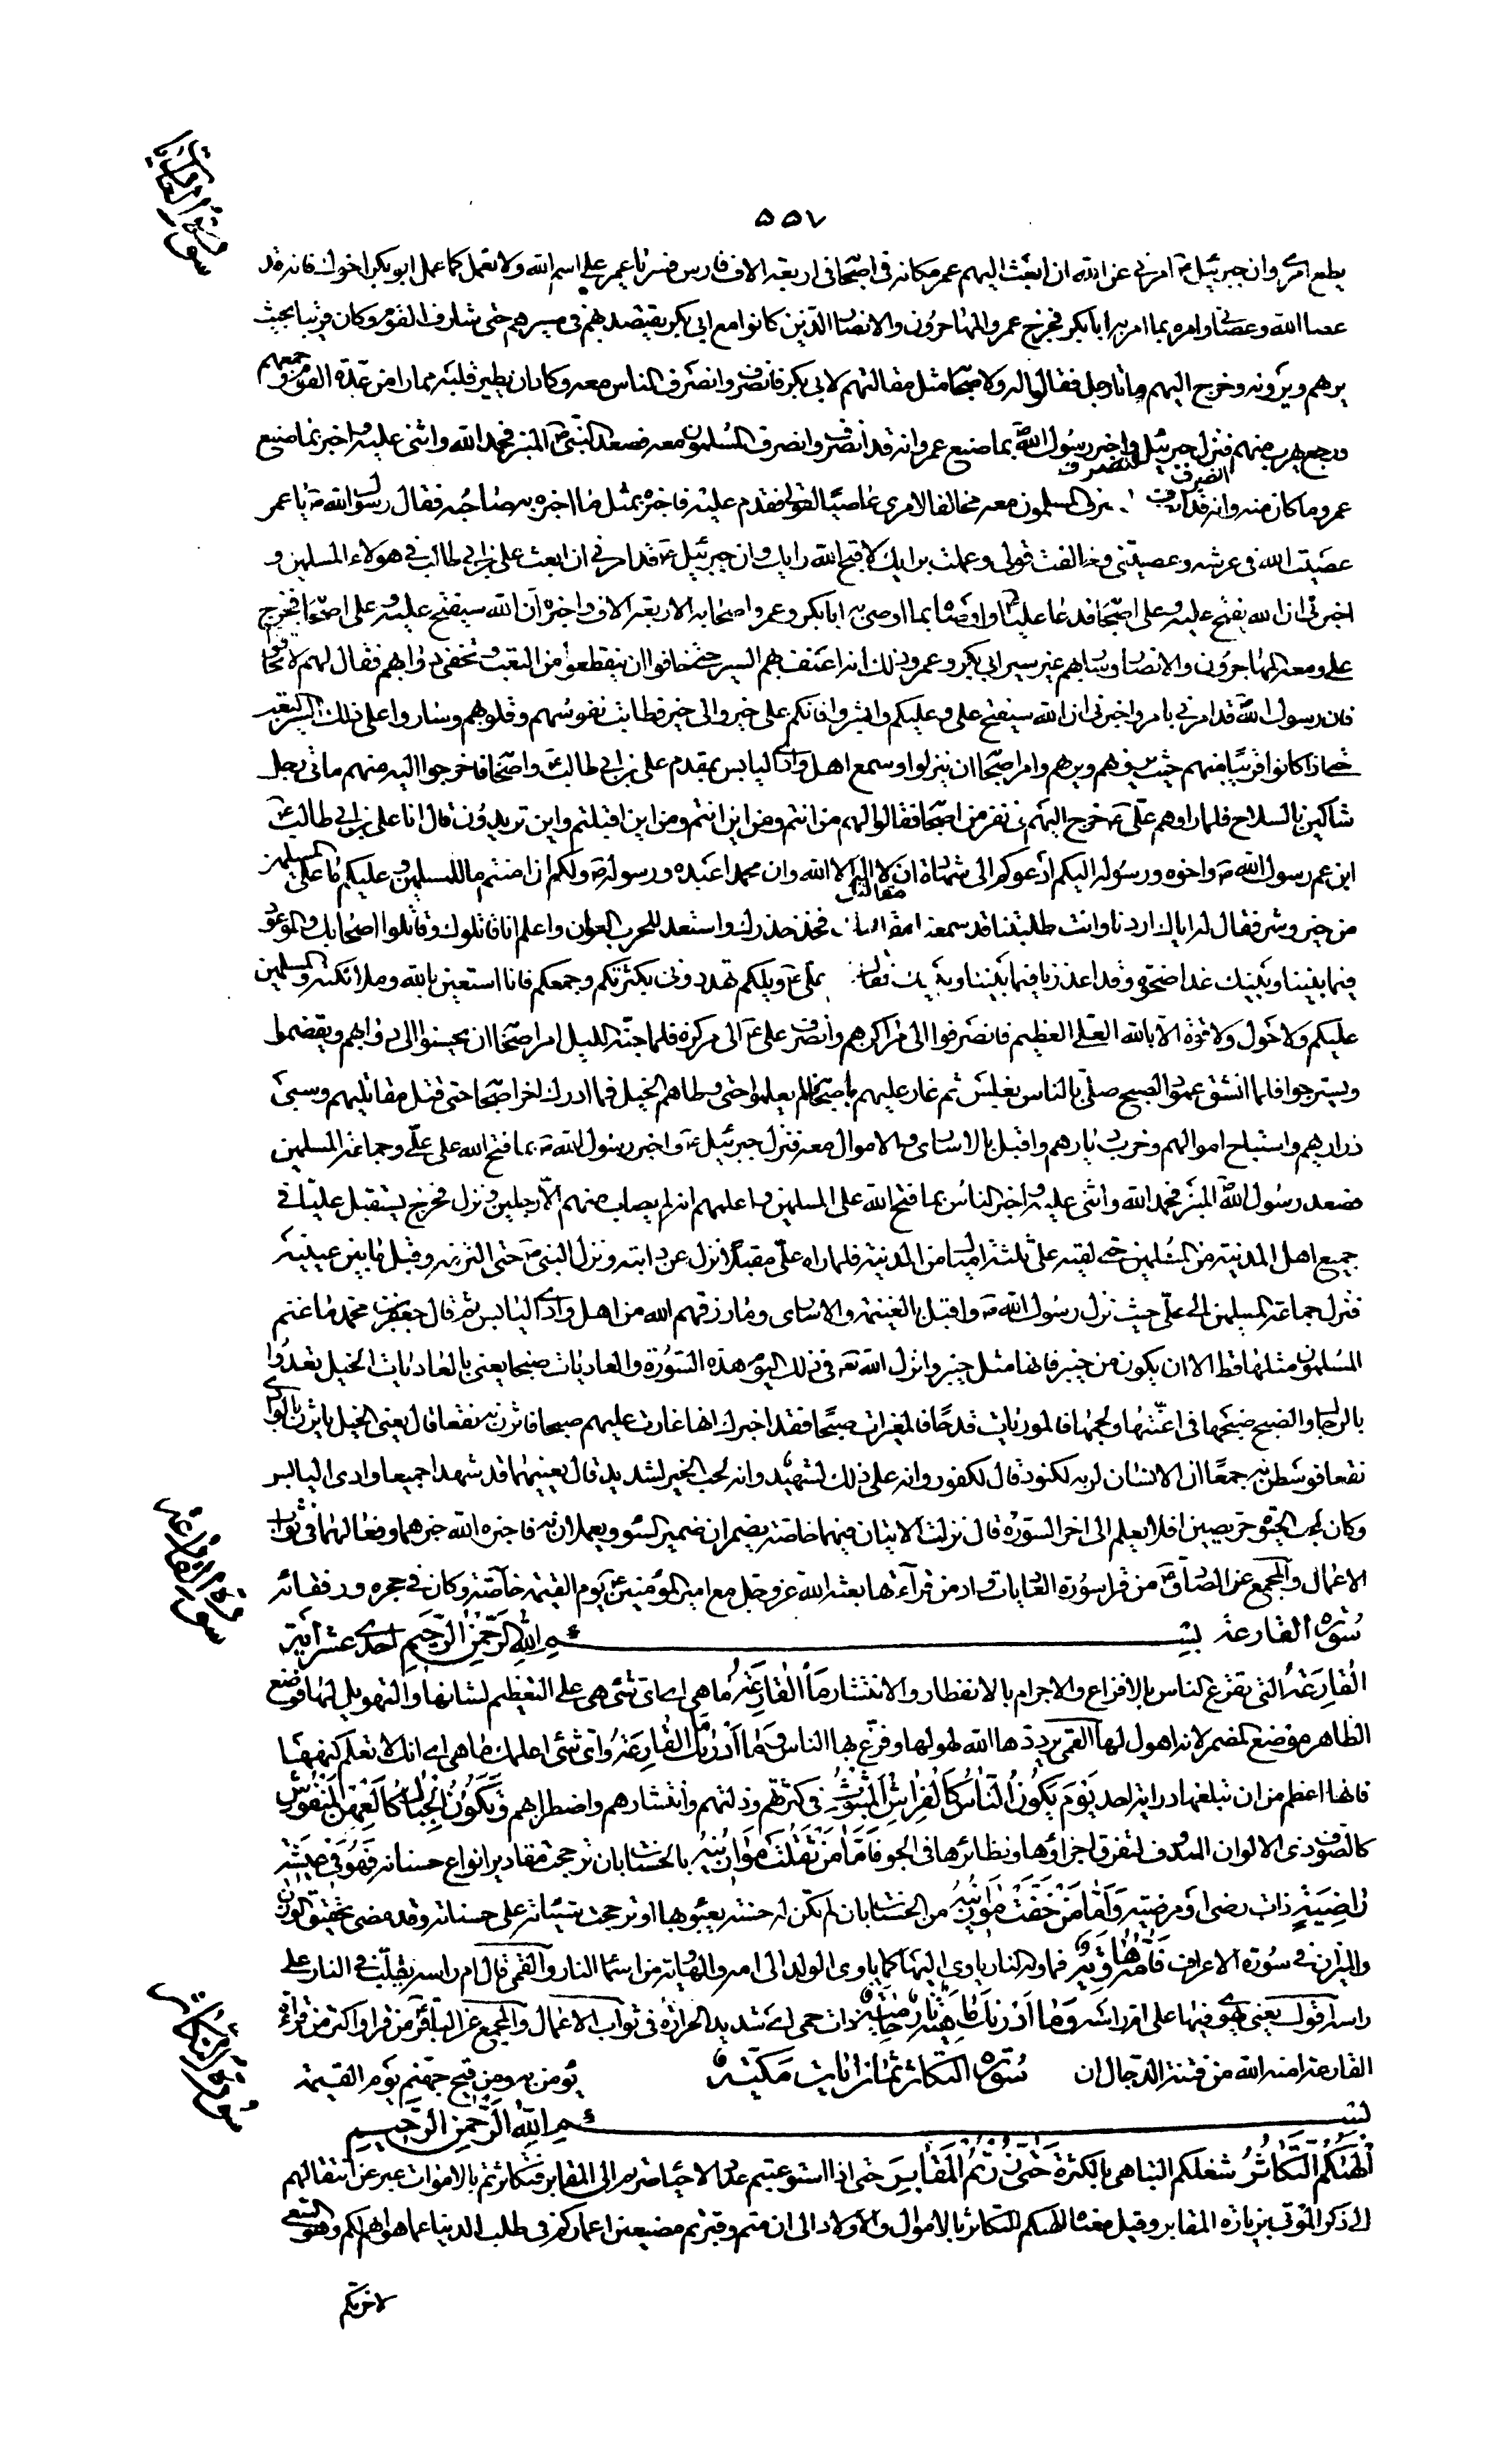 سورة العاديات
٥٥٧
يطع امري وان جبرئيل ع امرني عن الله ان ابعث اليهم عمر مكانه في اصحابه في اربعة الاف فارس فسر يا عمر على اسم الله ولا تعمل كما عمل ابو بكر اخوك فانه قد
عصا الله وعصاني وامره بما امر به ابا بكر فخرج عمر والمهاجرون والانصار الذين كانوا مع ابي بكر يقتصد بهم في مسيرهم حتى شارف القوم وكان قريبا بحيث
يرهم ويرونه وخرج اليهم مائتا رجل فقالوا له ولاصحابه مثل مقالتهم لابي بكر فانصرف وانصرف الناس معه وكاد ان يطير قلبه مما راى من عدة القوم وجمعهم
ورجع يهرب منهم فنزل جبرئيل واخبر رسول الله ص بما صنع عمر وانه قد انصرف وانصرف المسلمون معه فصعد النبي ص المنبر فحمد الله واثنى عليه واخبر بما صنع
عمر وما كان منه وانه قد انصرف وانصرف المسلمون معه مخالفا لامري عاصيا لقولي فقدم عليه فاخبره بمثل ما اخبره به صاحبه فقال رسول الله ص يا عمر
عصيت الله في عرشه وعصيتني وخالفت قولي وعملت برايك لا قبح الله رايك وان جبرئيل ع قد امرني ان ابعث علي بن ابي طالب في هولاء المسلمين و
اخبرني ان الله يفتح عليه وعلى اصحابه فدعا عليا ع واوصاه بما اوصى به ابا بكر وعمر واصحابه الاربعة الاف واخبره ان الله سيفتح عليه وعلى اصحابه فخرج
علي ومعه المهاجرون والانصار وسار بهم غير سير ابي بكر وعمر وذلك انه اعنف بهم السير حتى خافوا ان ينقطعوا من التعب وتحفى دوابهم فقال لهم لا تخافوا
فان رسول الله ص قد امرني بامر واخبرني ان الله سيفتح علي وعليكم وابشروا فانكم على خير والى خير فطابت نفوسهم وقلوبهم وساروا على ذلك السير التعب
حتى اذا كانوا قريبا منهم حيث يرونهم ويرهم وامر اصحابه ان ينزلوا وسمع اهل وادي اليابس بمقدم علي بن ابي طالب ع واصحابه فاخرجوا اليه منهم مائتي رجل
شاكين بالسلاح فلما راوهم علي ع خرج اليهم في نفر من اصحابه فقالوا لهم من انتم ومن اين انتم ومن اين اقبلتم واين تريدون قال انا علي بن ابي طالب ع
ابن عم رسول الله ص واخوه ورسوله اليكم ادعوكم الى شهادة ان لا اله الا الله وان محمدا عبده ورسوله ولكم ان امنتم ما للمسلمين وعليكم ما على المسلمين
من خير وشر فقال له اياك اردنا وانت طلبتنا قد سمعنا مقالتك فخذ حذرك واستعد للحرب العوان واعلم انا قاتلوك وقاتلوا اصحابك والموعود
فيما بيننا وبينك غدا ضحوة وقد اعذرنا فيما بيننا وبينك فقال علي ع ويلكم تهددوني بكثرتكم وجمعكم فانا استعين بالله وملائكته والمسلمين
عليكم ولا حول ولا قوة الا بالله العلي العظيم فانصرفوا الى مراكزهم وانصرف علي ع الى مركزه فلما جنه الليل امر اصحابه ان يحسنوا الى دوابهم ويقضموا
ويسرجوا فلما انشق عمود الصبح صلى بالناس بغلس ثم غار عليهم باصحابه فلم يعلموا حتى وطاهم الخيل فما ادرك اخر اصحابه حتى قتل مقاتليهم وسبى
ذراريهم واستباح اموالهم وخرب ديارهم واقبل بالاسارى والاموال معه فنزل جبرئيل ع واخبر رسول الله ص بما فتح الله على علي وجماعة المسلمين
فصعد رسول الله ص المنبر فحمد الله واثنى عليه واخبر الناس بما فتح الله على المسلمين واعلمهم انه لم يصاب منهم الا رجلين ونزل فخرج يستقبل عليا في
جميع اهل المدينة من المسلمين حتى لقيه على ثلثة اميال من المدينة فلما راه علي مقبلا نزل عن دابته ونزل النبي ص حتى التزمه وقبل ما بين عينيه
فنزل جماعة المسلمين الى علي حيث نزل رسول الله ص واقبل بالغنيمة والاسارى وما رزقهم الله من اهل وادي اليابس ثم قال جعفر بن محمد ما غنم
المسلمون مثلها قط الا ان يكون من خيبر فانها مثل خيبر وانزل الله تع في ذلك اليوم هذه السورة والعاديات ضبحا يعني بالعاديات الخيل تعدوا
بالرجال والضبح ضبحها في اعنتها ولجمها فالموريات قدحا فالمغيرات صبحا فقد اخبرك انها غارت عليهم صبحا فاثرن به نقعا قال يعني الخيل ياثرن بالوادي
نقعا فوسطن به جمعا ان الانسان لربه لكنود قال لكفور وانه على ذلك لشهيد وانه لحب الخير لشديد قال يعنيهما قد شهدا جميعا وادي اليابس
وكان لحب الحيوة حريصين افلا يعلم الى اخر السورة قال نزلت الايتان فيهما خاصة يضمران ضمير السوء ويعملان به فاخبره الله خبرهما وفعالهما في ثواب
الاعمال والمجمع عن الصادق ع من قرا سورة العاديات وادمن قراءتها بعثه الله عز وجل مع امير المؤمنين ع يوم القيمة خاصة وكان في حجره ورفقائه
سورة القارعة
سورة القارعة بسم الله الرحمن الرحيم احدى عشر اية
اَلْقارِعَةُ التي تقرع الناس بالافزاع والاجرام بالانفطار والانتشار مَا الْقارِعَةُ ما هي اي اي شيء هي على التعظيم لشانها والتهويل لها فوضع
الظاهر موضع المضمر لانه اهول لها القمي يرددها الله لهولها وفزع بها الناس وَما اَدْريكَ مَا الْقارِعَةُ واي شيء اعلمك ما هي اي انك لا تعلم كنهها
فانها اعظم من ان تبلغها دراية احد يَوْمَ يَكُونُ النّاسُ كَالْفَراشِ الْمَبْثُوثِ في كثرتهم وذلتهم وانتشارهم واضطرابهم وَتَكُونُ الْجِبالُ كَالْعِهْنِ الْمَنْفُوشِ
كالصوف ذي الالوان المندوف لتفرق اجزاؤها وتطائرها في الجو فَاَمّا مَنْ ثَقُلَتْ مَوازينُهُ بالحسنات بان ترجحت مقادير انواع حسناته فَهُوَ في عيشَةٍ
راضِيَةٍ ذات رضى او مرضية وَاَمّا مَنْ خَفَّتْ مَوازينُهُ من الحسنات بان لم تكن له حسنة يعبؤ بها او ترجحت سيئاته على حسناته وقد مضى تحقيق الوزن
والميزان في سورة الاعراف فَاُمُّهُ هاوِيَةٌ فماواه النار ياوي اليها كما ياوي الولد الى امه والهاوية من اسماء النار والقمي قال ام راسه يقلب في النار على
راسه اقول يعني يهوي فيها على ام راسه وَما اَدْريكَ ماهِيَهْ نارٌ حامِيَةٌ ذات حمى اي شديد الحرارة في ثواب الاعمال والمجمع عن الباقر ع من قرا واكثر من قراءة
سورة التكاثر
القارعة امنه الله من فتنة الدجال ان يؤمن به ومن قيح جهنم يوم القيمة سورة التكاثر ثمان ايات مكية
بسم الله الرحمن الرحيم
اَلْهيكُمُ التَّكاثُرُ شغلكم التباهي بالكثرة حَتّى زُرْتُمُ الْمَقابِرَ حتى اذا استوعبتم عدد الاحياء صرتم الى المقابر فتكاثرتم بالاموات عبر عن انتقالهم
الى ذكر الموتى بزيارة المقابر وقيل معناه الهيكم التكاثر بالاموال والاولاد الى ان متم وقبرتم مضيعين اعماركم في طلب الدنيا عما هو اهم لكم وهو السعي
لاخريكم